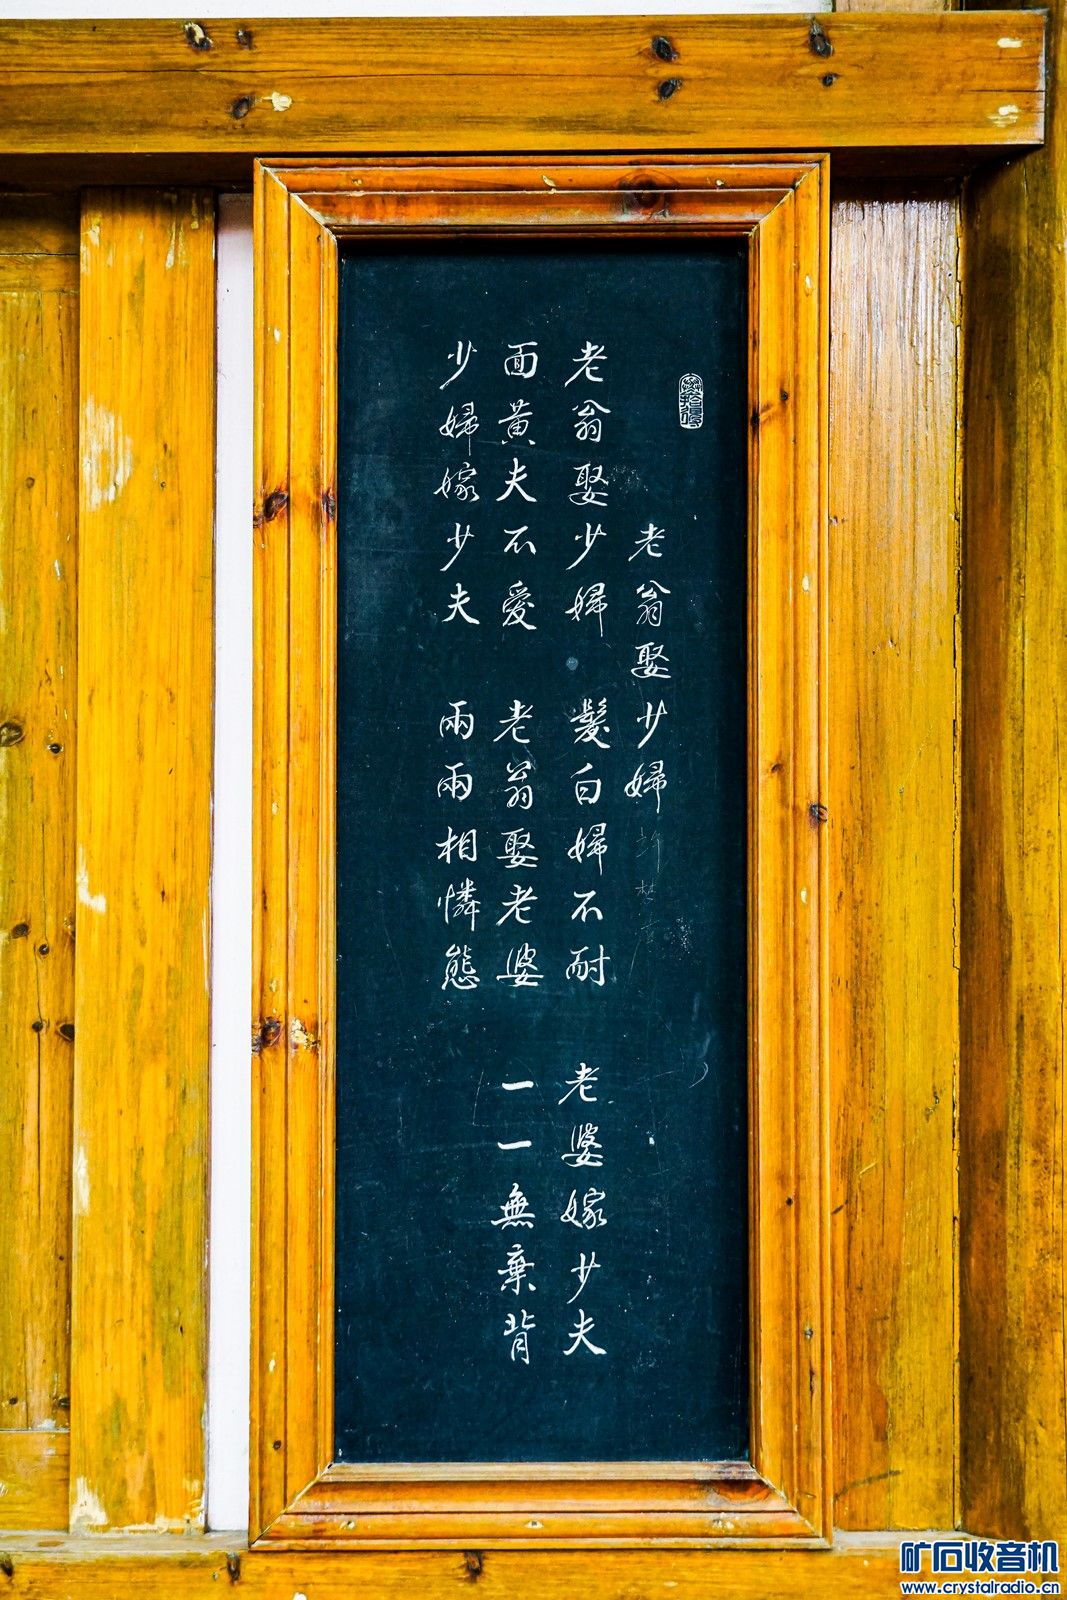 老翁娶少婦
老翁娶少婦 髮白婦不耐 老婆嫁少夫
面黃夫不愛 老翁娶老婆 一一無棄背
少婦嫁少夫 兩兩相憐態
矿石收音机
www.crystalradio.cn